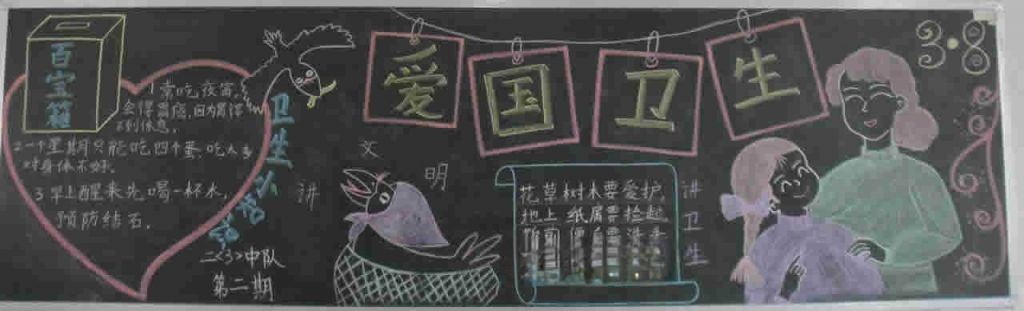 百宝箱
1 常吃夜宵,
会得胃癌,因为胃得
不到休息。
2 一个星期只能吃四个蛋,吃太多
对身体不好。
3 早上醒来先喝一杯水,
预防结石。
卫生小常识
二〈3〉中队
第二期
讲
文
明
爱国卫生
花草树木要爱护,
地上纸屑要捡起
讲卫生
3·8